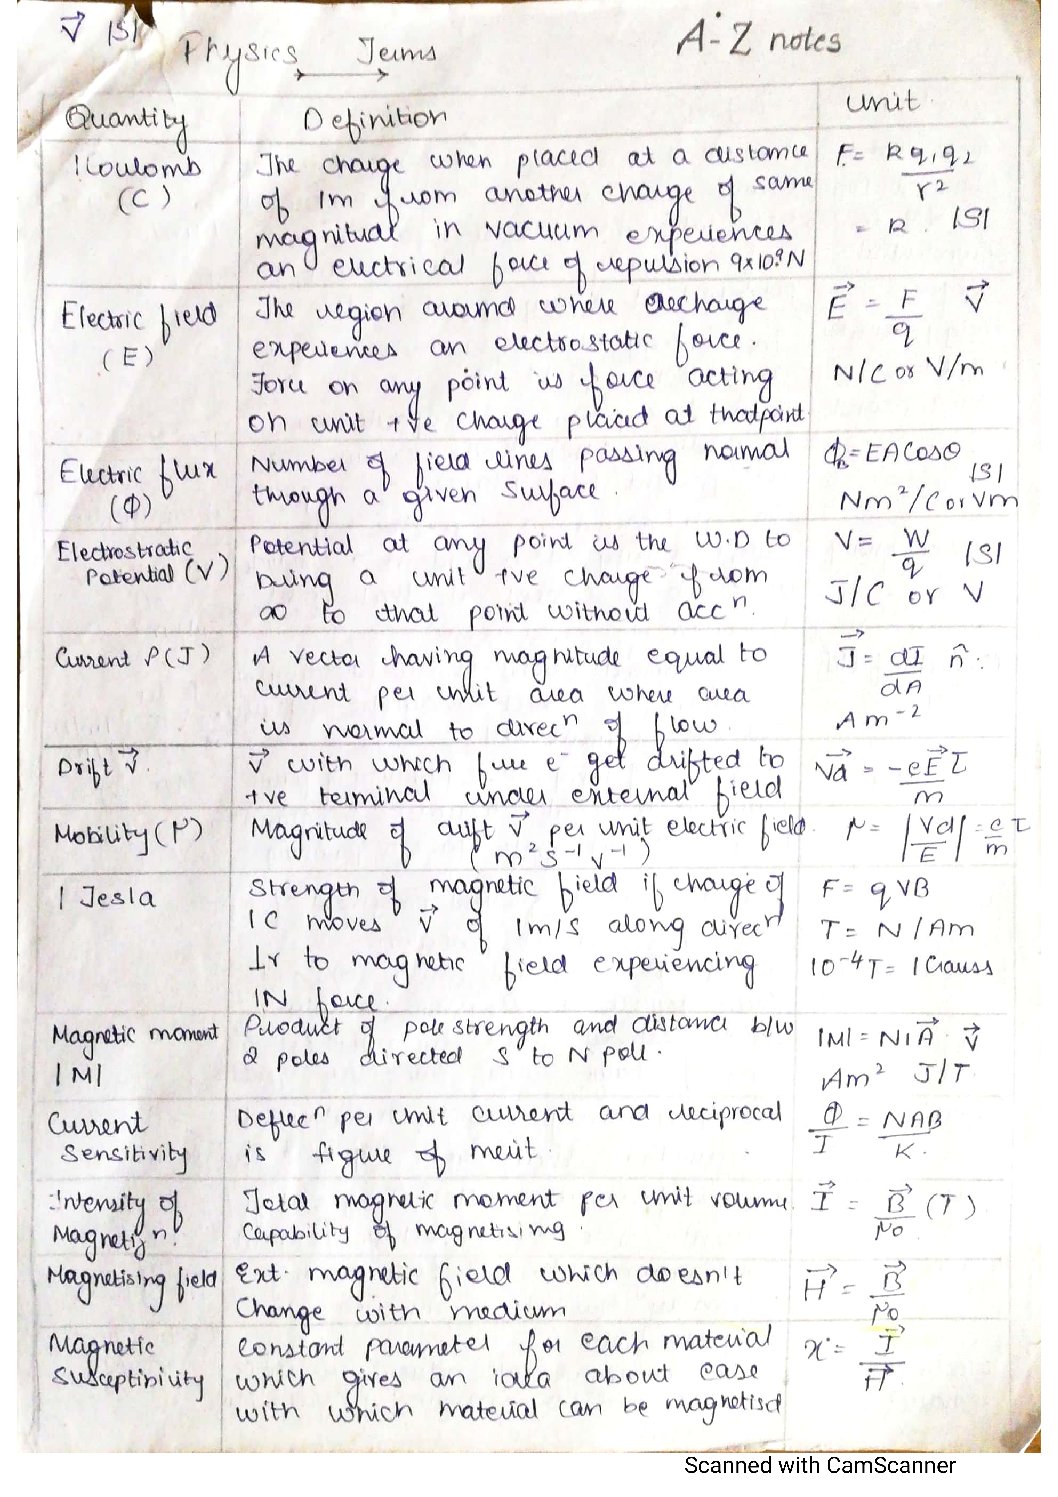 V⃗ |S|
Physics Terms
A-Z notes
Quantity Definition Unit
1 Coulomb (C)
The charge when placed at a distance
of 1m from another charge of same
magnitud in vacuum experiences
an electrical force of repulsion 9x10⁹N
F = k q₁q₂ / r²
= k . |S|
Electric field (E)
The region around where echarge
experiences an electrostatic force.
Force on any point is force acting
on unit +ve charge placed at thatpoint
E⃗ = F/q V⃗
N/C or V/m
Electric flux (Φ)
Number of field lines passing normal
through a given surface.
Φ = EACosθ |S|
Nm²/C or Vm
Electrostratic
Potential (V)
Potential at any point is the W.D to
bring a unit +ve charge from
∞ to that point without accⁿ.
V = W/q |S|
J/C or V
Current ρ(J)
A vector having magnitude equal to
current per unit area where area
is normal to direcⁿ of flow.
J⃗ = dI/dA n̂.
Am⁻²
Drift V⃗.
V⃗ with which free e⁻ get drifted to
+ve terminal under external field
V⃗d = -eE⃗τ/m
Mobility (μ)
Magnitude of drift V⃗ per unit electric field.
(m²s⁻¹v⁻¹)
μ = |Vd/E| = eτ/m
1 Tesla
Strength of magnetic field if charge of
1C moves V⃗ of 1m/s along direcⁿ
⊥r to magnetic field experiencing
1N force.
F = qVB
T = N/Am
10⁻⁴T = 1 Gauss
Magnetic moment
|M|
Product of pole strength and distance b/w
2 poles directed S to N pole.
|M| = NIA⃗ V⃗
Am² J/T
Current
Sensitivity
Deflecⁿ per unit current and reciprocal
is figure of merit.
Φ/I = NAB/K.
Intensity of
Magnetizⁿ.
Total magnetic moment per unit volume.
Capability of magnetising.
I⃗ = B⃗/μ₀ (T)
Magnetising field
Ext. magnetic field which doesn't
change with medium
H⃗ = B⃗/μ₀
Magnetic
Susceptibility
Constant parameter for each material
which gives an idea about ease
with which material can be magnetisd
χ = I⃗/H⃗.
Scanned with CamScanner